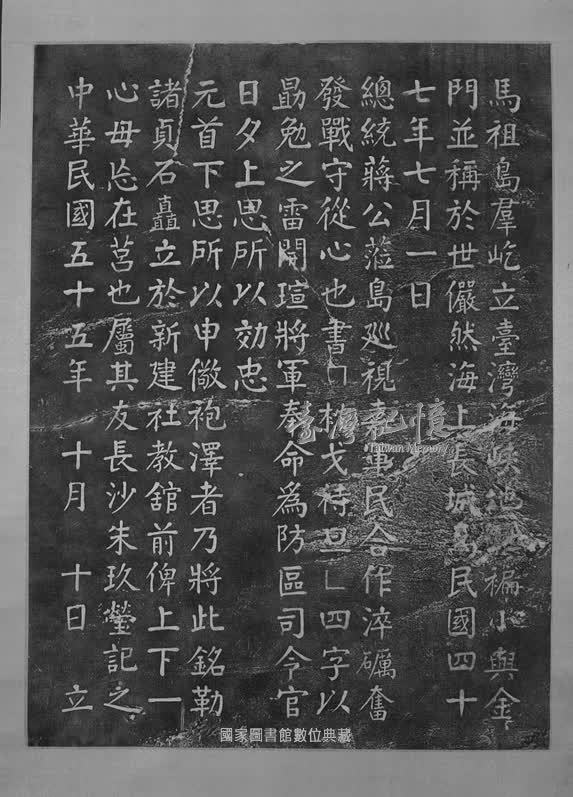 馬祖島羣屹立臺灣海峽地雖褊小與金
門並稱於世儼然海上長城焉民國四十
七年七月一日
總統蔣公蒞島巡視嘉軍民合作淬礪奮
發戰守從心也書﹁枕戈待旦﹂四字以
勗勉之雷開瑄將軍奉命為防區司令官
日夕上思所以効忠
元首下思所以申儆袍澤者乃將此銘勒
諸貞石矗立於新建社教舘前俾上下一
心毋忘在莒也屬其友長沙朱玖瑩記之
中華民國五十五年 十月 十日 立
臺灣記憶
Taiwan Memory
國家圖書館數位典藏